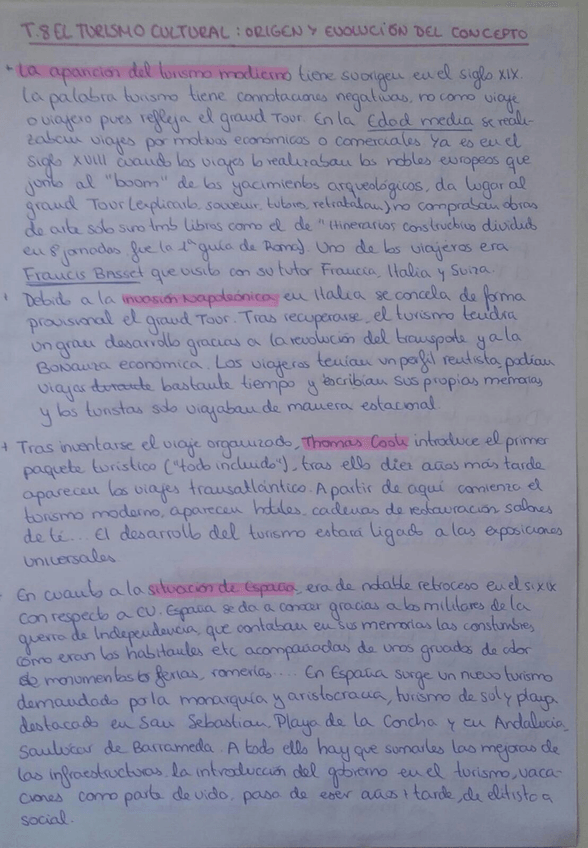 T.8 EL TURISMO CULTURAL: ORIGEN Y EVOLUCIÓN DEL CONCEPTO
La aparición del turismo moderno tiene su origen en el siglo XIX.
La palabra turismo tiene connotaciones negativas, no como viaje
o viajero pues refleja el grand Tour. En la Edad media se reali-
zaban viajes por motivos económicos o comerciales. Ya es en el
siglo XVIII cuando los viajes lo realizaban los nobles europeos que
junto al "boom" de los yacimientos arqueológicos, da lugar al
grand Tour (explicarlo, souvenir, tutores, retrataban) no compraban obras
de arte solo sino tmb libros como el de "Itinerarios constructivo dividido
en 8 jornadas fue la 1ª guía de Roma). Uno de los viajeros era
Francis Basset que visitó con su tutor Francia, Italia y Suiza.
Debido a la invasión Napoleónica en Italia se concela de forma
provisional el grand Tour. Tras recuperarse, el turismo tendrá
un gran desarrollo gracias a la revolución del transporte y a la
Bonanza económica. Los viajeros tenían un perfil rentista, podían
viajar durante bastante tiempo y escribían sus propias memorias
y los turistas solo viajaban de manera estacional.
+ Tras inventarse el viaje organizado, Thomas Cook introduce el primer
paquete turístico ("todo incluido"), tras ello diez años más tarde
aparecen los viajes transatlántico. A partir de aquí comienza el
turismo moderno, aparecen hoteles, cadenas de restauración salones
de té... El desarrollo del turismo estará ligado a las exposiciones
universales.
En cuanto a la situación de España, era de notable retroceso en el s.XIX
con respecto a EU. España se da a conocer gracias a los militares de la
guerra de Independencia, que contaban en sus memorias las constumbres,
cómo eran los habitantes etc acompañadas de unos gravados de color
de monumentos ferias, romerías... En España surge un nuevo turismo
demandado por la monarquía y aristocracia, turismo de sol y playa
destacado en San Sebastian, Playa de la Concha y en Andalucía,
Sanlúcar de Barrameda. A todo ello hay que sumarles las mejoras de
las infraestructuras, la introducción del gobierno en el turismo, vaca-
ciones como parte de vida, pasa de eser años + tarde, de elitista a
social.